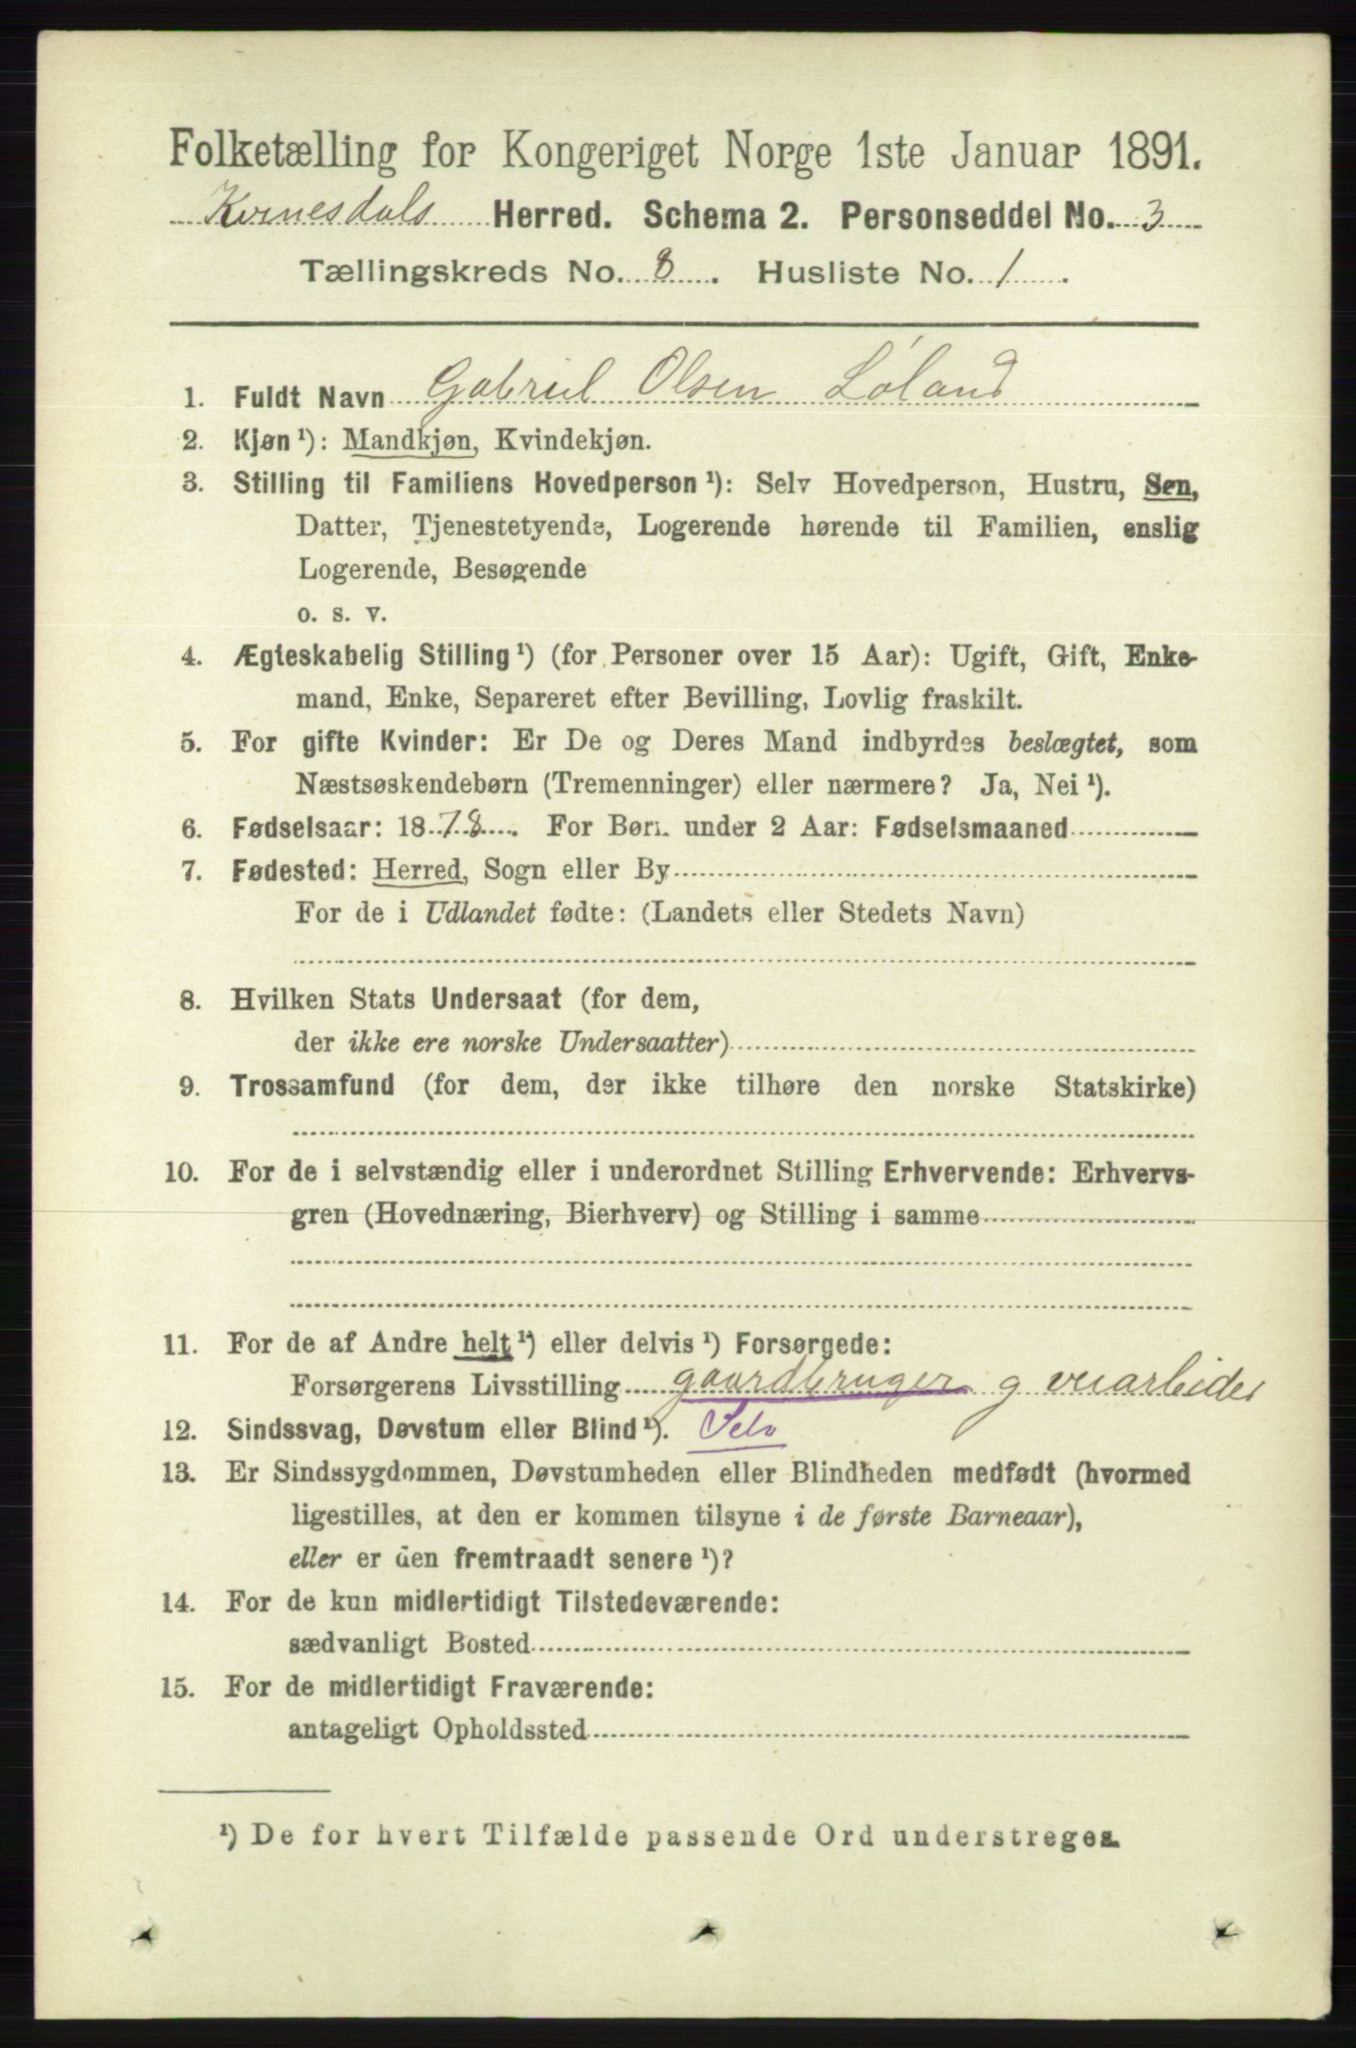 Folketælling for Kongeriget Norge 1ste Januar 1891.
Kvinesdals Herred. Schema 2. Personseddel No. 3
Tællingskreds No. 8. Husliste No. 1.
1. Fuldt Navn Gabriel Olsen Løland
2. Kjøn ¹): Mandkjøn, Kvindekjøn.
3. Stilling til Familiens Hovedperson ¹): Selv Hovedperson, Hustru, Søn,
Datter, Tjenestetyende, Logerende hørende til Familien, enslig
Logerende, Besøgende
o. s. v.
4. Ægteskabelig Stilling ¹) (for Personer over 15 Aar): Ugift, Gift, Enke-
mand, Enke, Separeret efter Bevilling, Lovlig fraskilt.
5. For gifte Kvinder: Er De og Deres Mand indbyrdes beslægtet, som
Næstsøskendebørn (Tremenninger) eller nærmere? Ja, Nei ¹).
6. Fødselsaar: 1878. For Børn under 2 Aar: Fødselsmaaned
7. Fødested: Herred, Sogn eller By
For de i Udlandet fødte: (Landets eller Stedets Navn)
8. Hvilken Stats Undersaat (for dem,
der ikke ere norske Undersaatter)
9. Trossamfund (for dem, der ikke tilhøre den norske Statskirke)
10. For de i selvstændig eller i underordnet Stilling Erhvervende: Erhvervs-
gren (Hovednæring, Bierhverv) og Stilling i samme
11. For de af Andre helt ¹) eller delvis ¹) Forsørgede:
Forsørgerens Livsstilling gaardbruger g veiarbeider
12. Sindssvag, Døvstum eller Blind ¹). Selv
13. Er Sindssygdommen, Døvstumheden eller Blindheden medfødt (hvormed
ligestilles, at den er kommen tilsyne i de første Barneaar),
eller er den fremtraadt senere ¹)?
14. For de kun midlertidigt Tilstedeværende:
sædvanligt Bosted
15. For de midlertidigt Fraværende:
antageligt Opholdssted
¹) De for hvert Tilfælde passende Ord understreges.